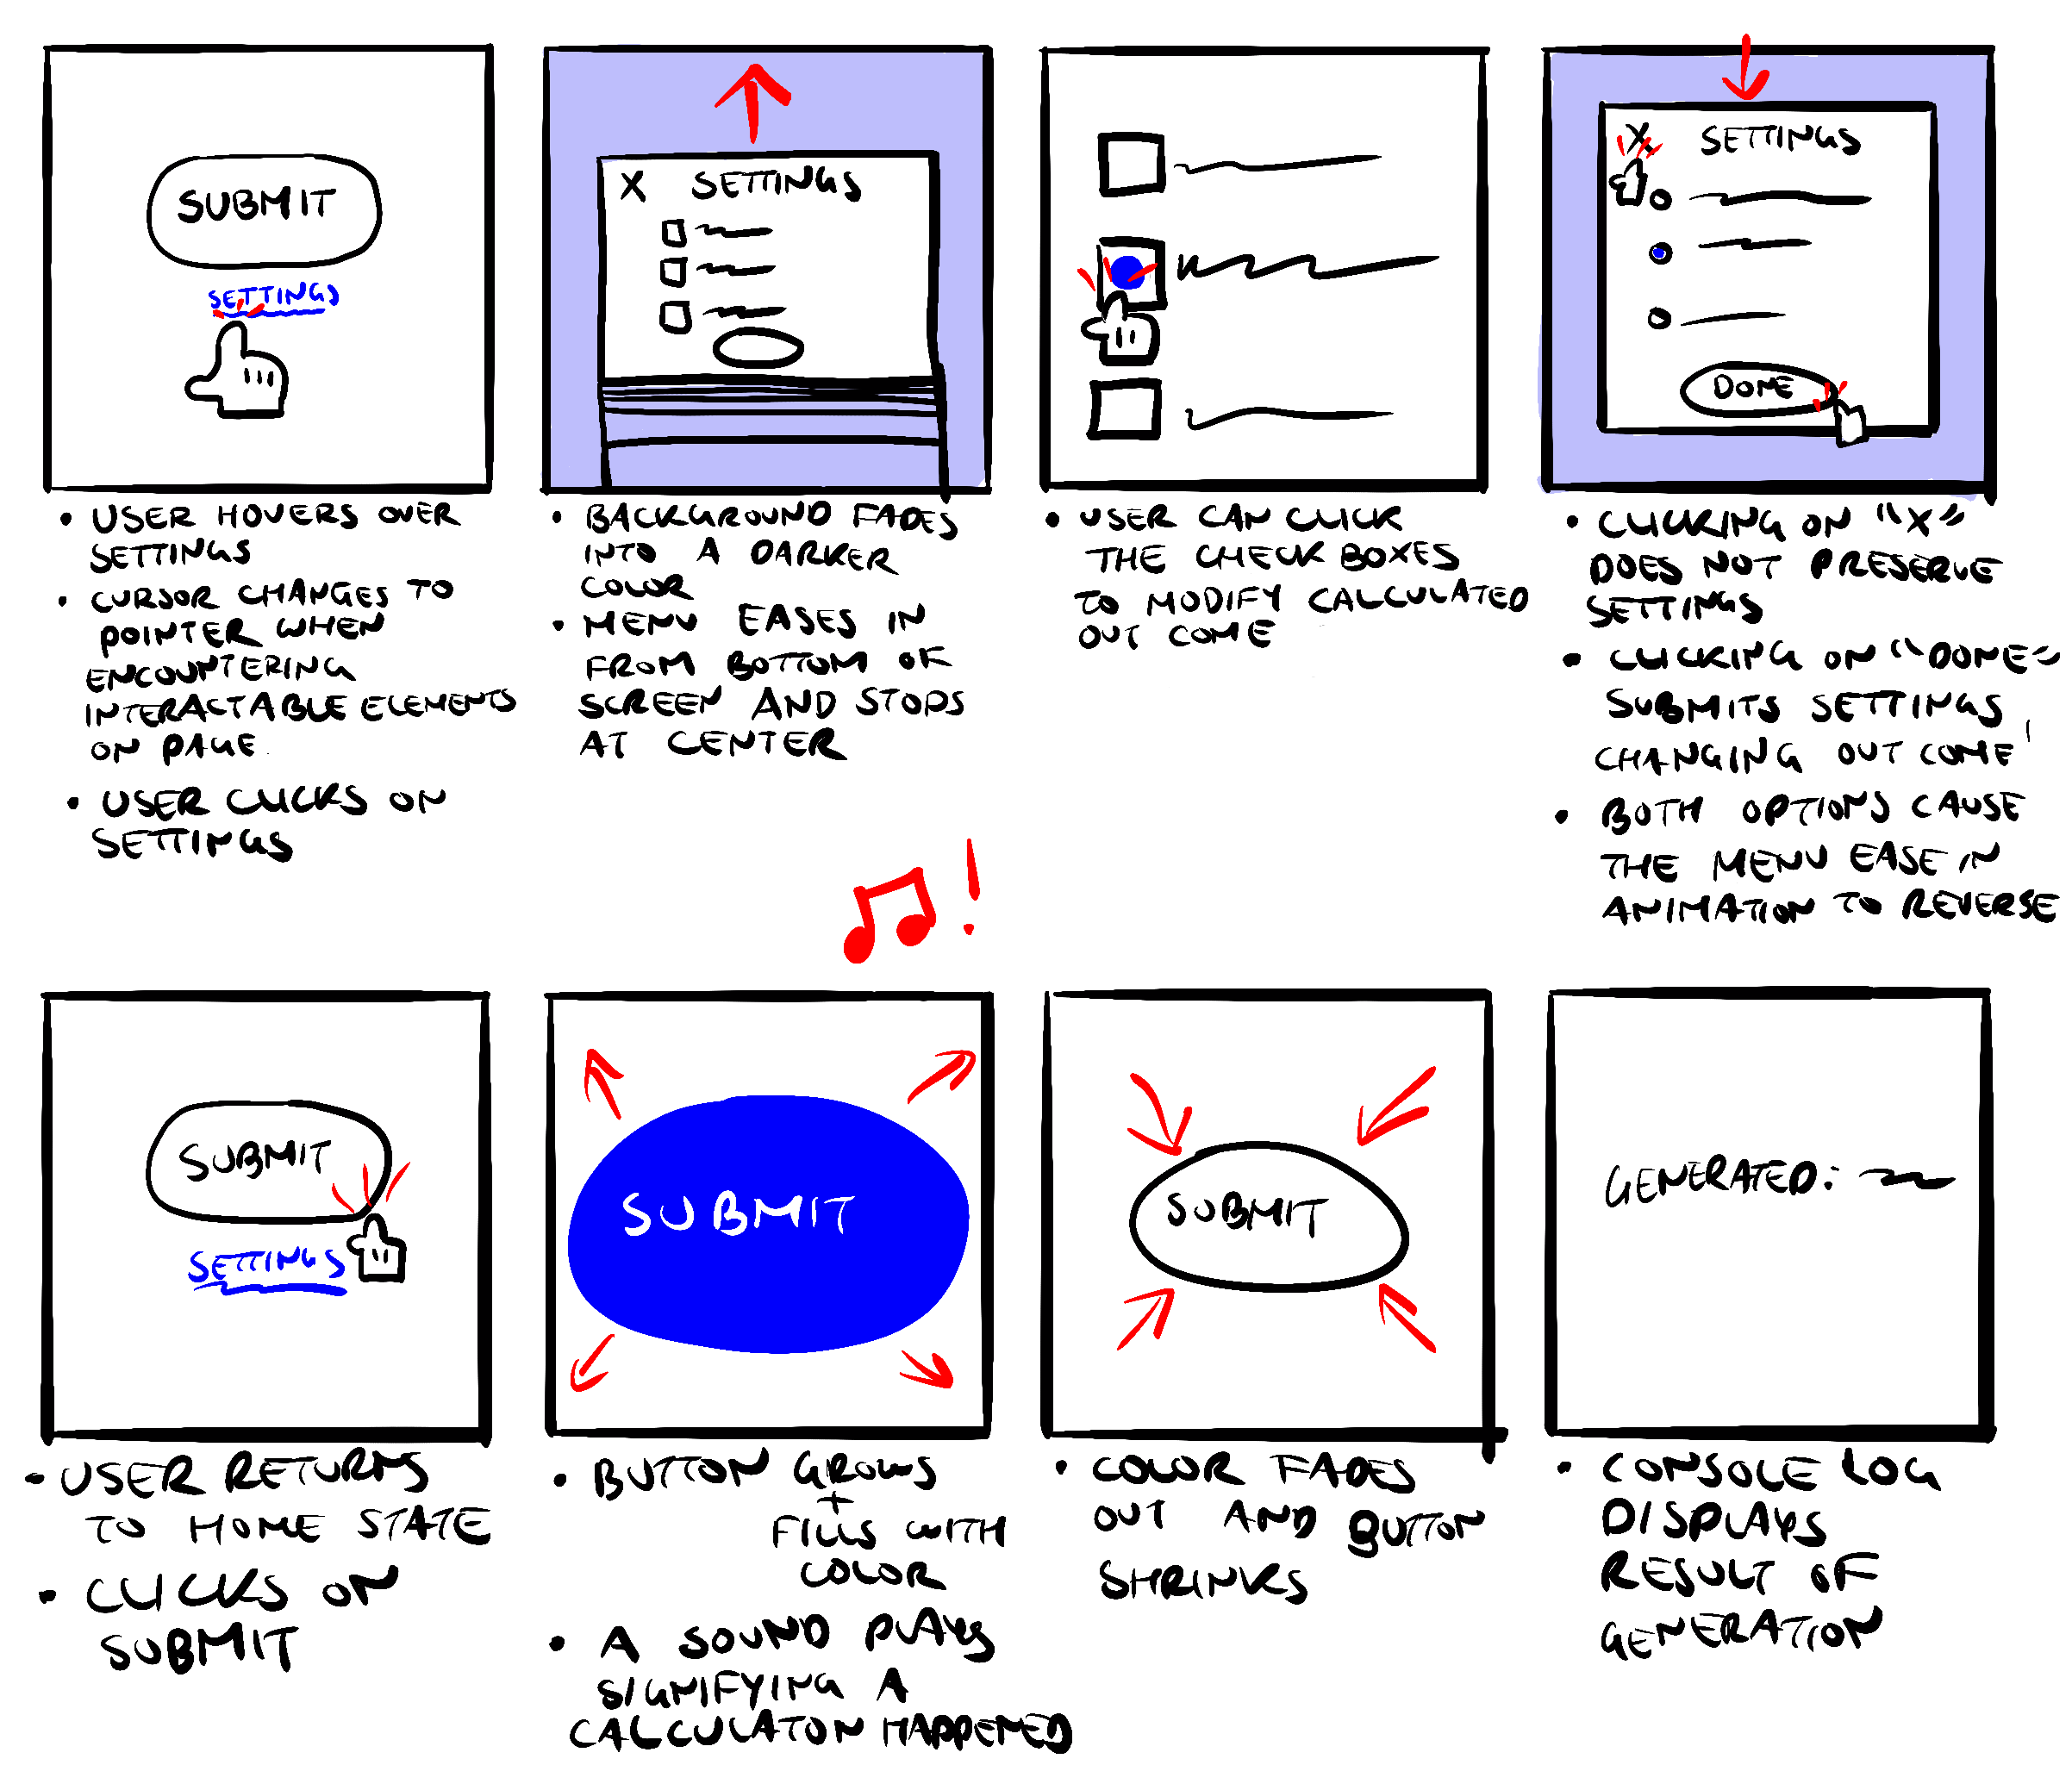 SUBMIT
SETTINGS
• USER HOVERS OVER
SETTINGS
• CURSOR CHANGES TO
POINTER WHEN
ENCOUNTERING
INTERACTABLE ELEMENTS
ON PAGE.
• USER CLICKS ON
SETTINGS
X SETTINGS
• BACKGROUND FADES
INTO A DARKER
COLOR
• MENU EASES IN
FROM BOTTOM OF
SCREEN AND STOPS
AT CENTER
• USER CAN CLICK
THE CHECK BOXES
TO MODIFY CALCULATED
OUT COME
X SETTINGS
DONE
• CLICKING ON "X"
DOES NOT PRESERVE
SETTINGS
• CLICKING ON "DONE"
SUBMITS SETTINGS,
CHANGING OUT COME
• BOTH OPTIONS CAUSE
THE MENU EASE IN
ANIMATION TO REVERSE
SUBMIT
SETTINGS
• USER RETURNS
TO HOME STATE
• CLICKS ON
SUBMIT
!
SUBMIT
• BUTTON GROWS
+
FILLS WITH
COLOR
• A SOUND PLAYS
SIGNIFYING A
CALCULATON HAPPENED
SUBMIT
• COLOR FADES
OUT AND BUTTON
SHRINKS
GENERATED:
• CONSOLE LOG
DISPLAYS
RESULT OF
GENERATION